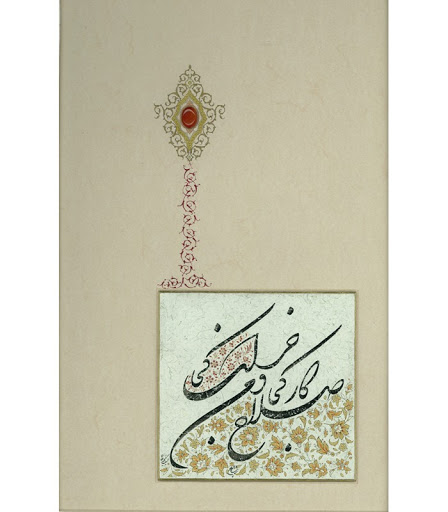 صلاح کار کجا و من خراب کجا